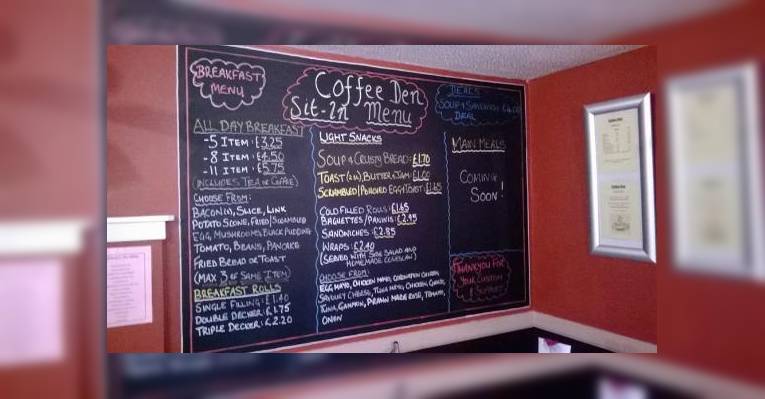 BREAKFAST
MENU
ALL DAY BREAKFAST
-5 ITEM: £3.25
-8 ITEM: £4.50
-11 ITEM: £5.75
(INCLUDES TEA OR COFFEE)
CHOOSE FROM:
BACON(2), SLICE, LINK
POTATO SCONE, FRIED/SCRAMBLED
EGG, MUSHROOMS, BLACK PUDDING
TOMATO, BEANS, PANCAKE
FRIED BREAD OR TOAST
(MAX 3 OF SAME ITEM)
BREAKFAST ROLLS
SINGLE FILLING: £1.40
DOUBLE DECKER: £1.75
TRIPLE DECKER: £2.20
Coffee Den
Sit-In Menu
LIGHT SNACKS
SOUP & CRUSTY BREAD: £1.70
TOAST (2 SL), BUTTER & JAM: £1.00
SCRAMBLED/POACHED EGG & TOAST: £1.85
COLD FILLED ROLLS: £1.65
BAGUETTES/PANINIS: £2.95
SANDWICHES: £2.85
WRAPS: £2.40
(SERVED WITH SIDE SALAD AND
HOMEMADE COLESLAW)
CHOOSE FROM:
EGG MAYO, CHICKEN MAYO, CORONATION CHICKEN,
SAVOURY CHEESE, TUNA MAYO, CHICKEN, CHEESE,
TUNA, GAMMON, PRAWN MARIE ROSE, TOMATO,
ONION
DEALS
SOUP & SANDWICH
DEAL
MAIN MEALS
COMING
SOON!
THANKYOU FOR
YOUR CUSTOM
& SUPPORT